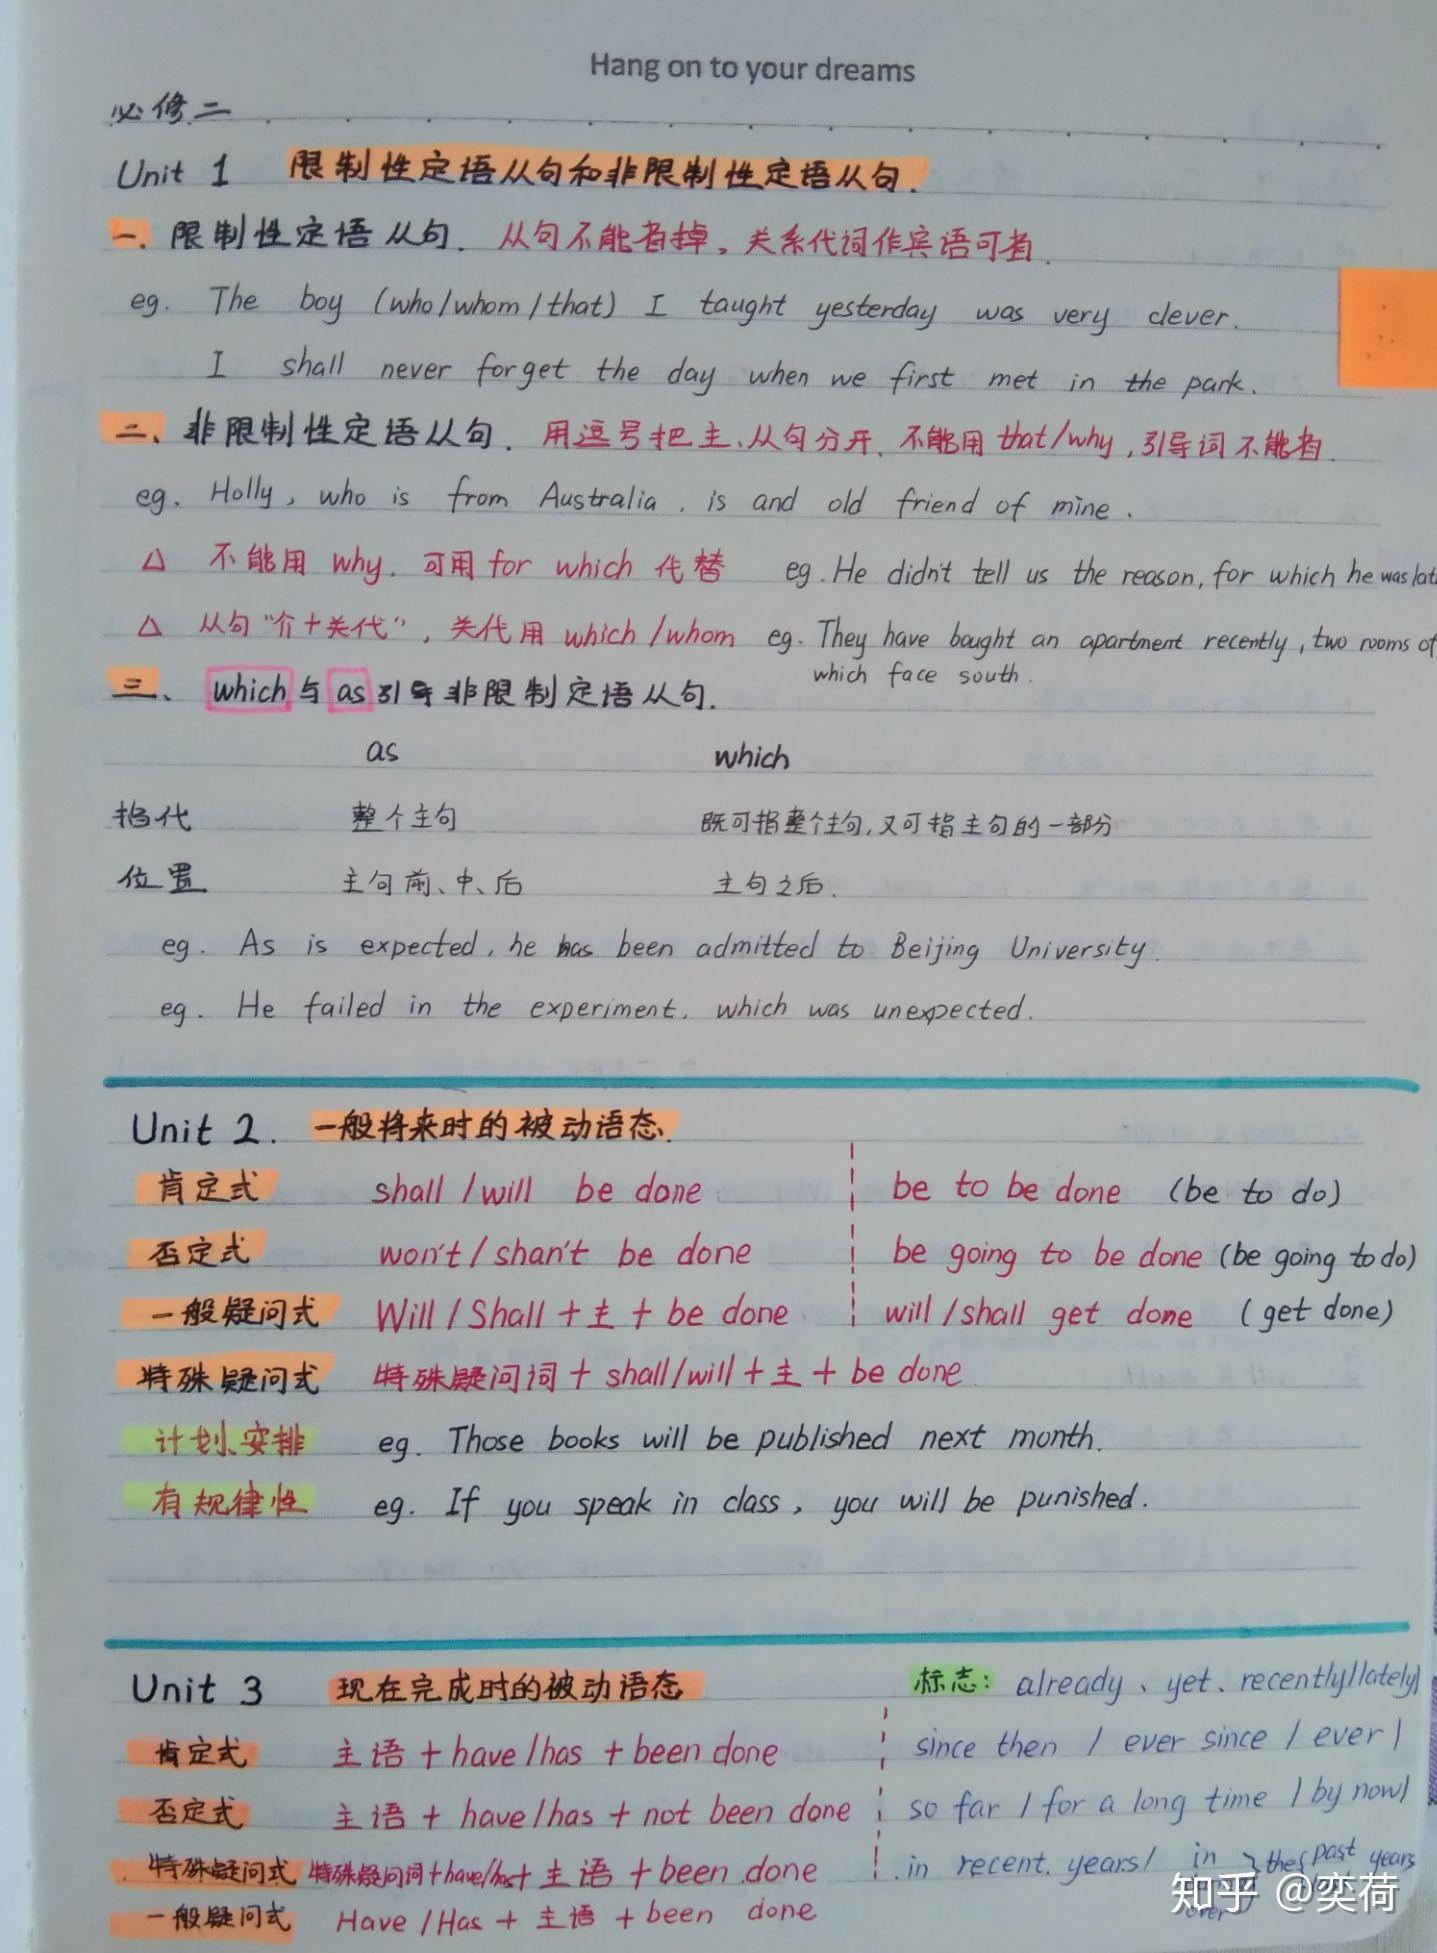 Hang on to your dreams
必修二
Unit 1 限制性定语从句和非限制性定语从句.
一. 限制性定语从句. 从句不能省掉, 关系代词作宾语可省.
eg. The boy (who/whom/that) I taught yesterday was very clever.
I shall never forget the day when we first met in the park.
二、非限制性定语从句. 用逗号把主、从句分开、不能用 that/why, 引导词不能省.
eg. Holly, who is from Australia, is and old friend of mine.
△ 不能用 why. 可用 for which 代替 eg. He didn't tell us the reason, for which he was lat
△ 从句“介+关代”, 关代用 which/whom eg. They have bought an apartment recently, two rooms of
which face south.
三、which与as引导非限制定语从句.
as which
指代 整个主句 既可指整个主句,又可指主句的一部分
位置 主句前、中、后 主句之后.
eg. As is expected, he has been admitted to Beijing University.
eg. He failed in the experiment, which was unexpected.
Unit 2. 一般将来时的被动语态.
肯定式 shall/will be done be to be done (be to do)
否定式 won't/shan't be done be going to be done (be going to do)
一般疑问式 Will/Shall+主+be done will/shall get done (get done)
特殊疑问式 特殊疑问词+shall/will+主+be done
计划、安排 eg. Those books will be published next month.
有规律性 eg. If you speak in class, you will be punished.
Unit 3 现在完成时的被动语态 标志: already、yet、recently/lately/
肯定式 主语+have/has+been done since then / ever since / ever /
否定式 主语+have/has+not been done so far / for a long time / by now/
特殊疑问式 特殊疑问词+have/has+主语+been done in recent years/ in the past years
over
一般疑问式 Have/Has+主语+been done
知乎 @奕荷